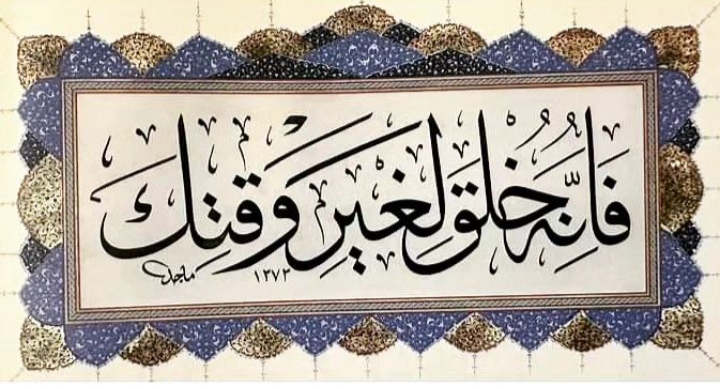 فَاِنَّهُ خُلِقَ لِغَيرِ وَقتِك
ماجد ١٣٧٣